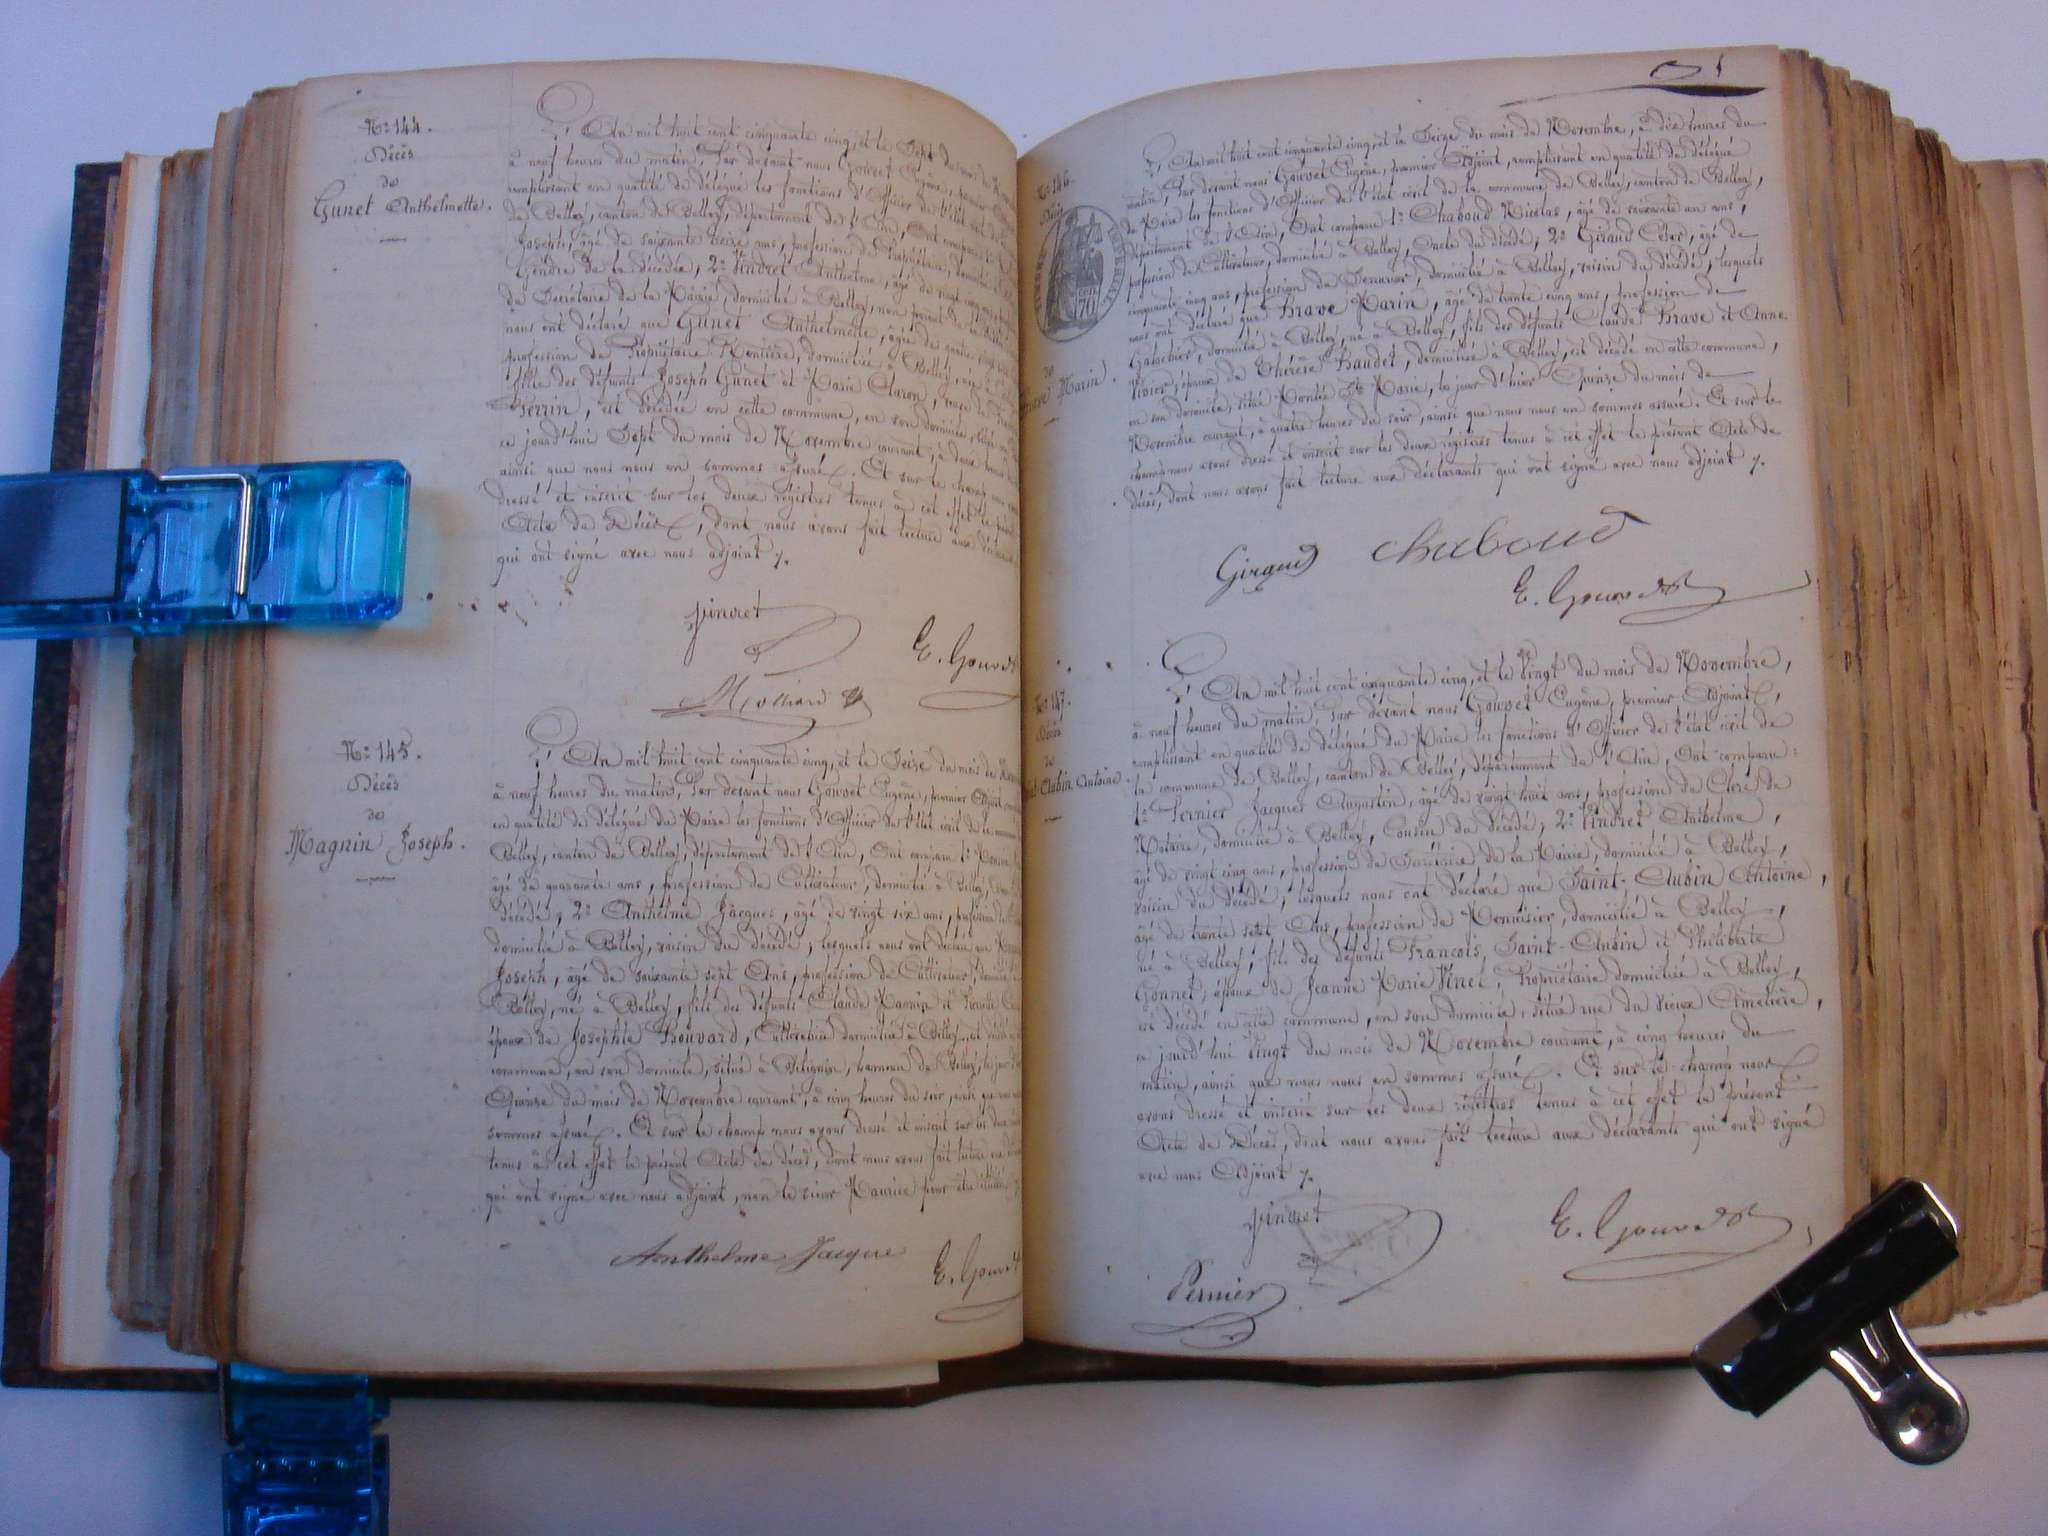 N.º 144.
Décès
de
Gunet Anthelmette.
L'An mil huit cent cinquante cinq, et le Sept du mois de
à neuf heures du matin, Par devant nous Gouvet Eugène, premier
remplissant en qualité de délégué les fonctions d'Officier de l'état civil de
de Belley, canton de Belley, département de l'Ain, Ont comparu 1º
Joseph, âgé de soixante treize ans, profession de Propriétaire, domicilié
Gendre de la décédée, 2º Vindret Anthelme, âgé de vingt cinq ans
de Secrétaire de la Mairie, domicilié à Belley, non parent de la
nous ont déclaré que Gunet Anthelmette, âgée de quatre vingt
profession de Propriétaire Rentière, domiciliée à Belley, née à
fille des défunts Joseph Gunet et Marie Claron, veuve de
Perrin, est décédée en cette commune, en son domicile,
ce jourd'hui Sept du mois de Novembre courant, à deux heures
ainsi que nous nous en sommes assuré. Et sur le champ nous
dressé et inscrit sur les deux régistres tenus à cet effet le
Acte de Décès, dont nous avons fait lecture aux
qui ont signé avec nous adjoint ./.
Vindret
E. Gouvet
N.º 145.
Décès
de
Magnin Joseph.
L'An mil huit cent cinquante cinq, et le Seize du mois de
à neuf heures du matin, Par devant nous Gouvet Eugène, premier Adjoint,
en qualité de délégué du Maire les fonctions d'Officier de l'état civil de la
Belley, canton de Belley, département de l'Ain, Ont comparu 1º
âgé de quarante ans, profession de Cultivateur, domicilié à Belley,
décédé, 2º Anthelme Jacques, âgé de vingt six ans, profession de
domicilié à Belley, voisin du décédé, lesquels nous ont déclaré que
Joseph, âgé de soixante sept Ans, profession de Cultivateur, domicilié
Belley, né à Belley, fils des défunts Claude Magnin et
époux de Josephte Bouvard, Cultivatrice domiciliée à Belley, est
commune, en son domicile, situé à hameau de Belley, le jour
Quinze du mois de Novembre courant, à cinq heures du soir, ainsi que
sommes assuré. Et sur le champ nous avons dressé et inscrit sur les deux
tenus à cet effet le présent Acte de décès, dont nous avons fait lecture aux
qui ont signé avec nous adjoint, non le sieur Maurice pour être
Anthelme Jacque
E. Gouvet
N.º 146.
Décès
de
Brave Marin.
70
L'An mil huit cent cinquante cinq, et le Seize du mois de Novembre, à dix heures du
matin, Par devant nous Gouvet Eugène, premier Adjoint, remplissant en qualité de délégué
du Maire les fonctions d'Officier de l'état civil de la commune de Belley, canton de Belley,
département de l'Ain, Ont comparu 1º Chaboud Nicolas, âgé de soixante un ans,
profession de Cultivateur, domicilié à Belley, Oncle du décédé, 2º Giraud César, âgé de
cinquante cinq ans, profession de Serrurier, domicilié à Belley, voisin du décédé, lesquels
nous ont déclaré que Brave Marin, âgé de trente cinq ans, profession de
Galochier, domicilié à Belley, né à Belley, fils des défunts Claude Brave et Anne
Vivier, époux de Thérèse Baudet, domiciliée à Belley, est décédé en cette commune,
en son domicile, situé Montée Ste Marie, le jour d'hier Quinze du mois de
Novembre courant, à quatre heures du soir, ainsi que nous nous en sommes assuré. Et sur le
champ nous avons dressé et inscrit sur les deux régistres tenus à cet effet le présent Acte de
décès, dont nous avons fait lecture aux déclarants qui ont signé avec nous adjoint ./.
Giraud Chaboud
E. Gouvet
N.º 147.
Décès
de
Saint-Aubin Antoine.
L'An mil huit cent cinquante cinq, et le Vingt du mois de Novembre,
à neuf heures du matin, Par devant nous Gouvet Eugène, premier Adjoint,
remplissant en qualité de délégué du Maire les fonctions d'Officier de l'état civil de
la commune de Belley, canton de Belley, département de l'Ain, Ont comparu :
1º Pernier Jacques Augustin, âgé de vingt huit ans, profession de Clerc de
Notaire, domicilié à Belley, Cousin du décédé, 2º Vindret Anthelme,
âgé de vingt cinq ans, profession de Secrétaire de la Mairie, domicilié à Belley,
voisin du décédé, lesquels nous ont déclaré que Saint-Aubin Antoine,
âgé de trente sept Ans, profession de Menuisier, domicilié à Belley,
né à Belley, fils des défunts François Saint-Aubin et Philiberte
Gonnet, époux de Jeanne Marie Vinel, Propriétaire domiciliée à Belley,
est décédé en cette commune, en son domicile, situé rue du vieux Cimetière,
ce jourd'hui Vingt du mois de Novembre courant, à cinq heures du
matin, ainsi que nous nous en sommes assuré. Et sur le champ nous
avons dressé et inscrit sur les deux régistres tenus à cet effet le présent
Acte de Décès, dont nous avons fait lecture aux déclarants qui ont signé
avec nous Adjoint ./.
Vindret
E. Gouvet
Pernier